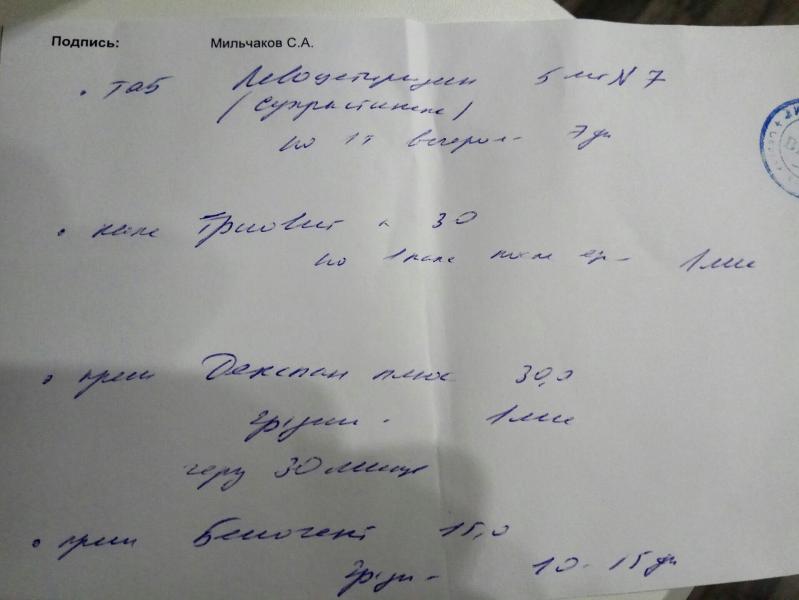 Подпись: Мильчаков С.А.
• таб Левоцетиризин 5 мг N 7
(Супрастинекс)
по 1т вечером 7 дн
• капс Триовит N 30
по 1 капс после еды 1 мес
• крем Декспан плюс 30,0
2 р/д 1 мес
через 30 минут
• крем Белогент 15,0
2 р/д 10-15 дн